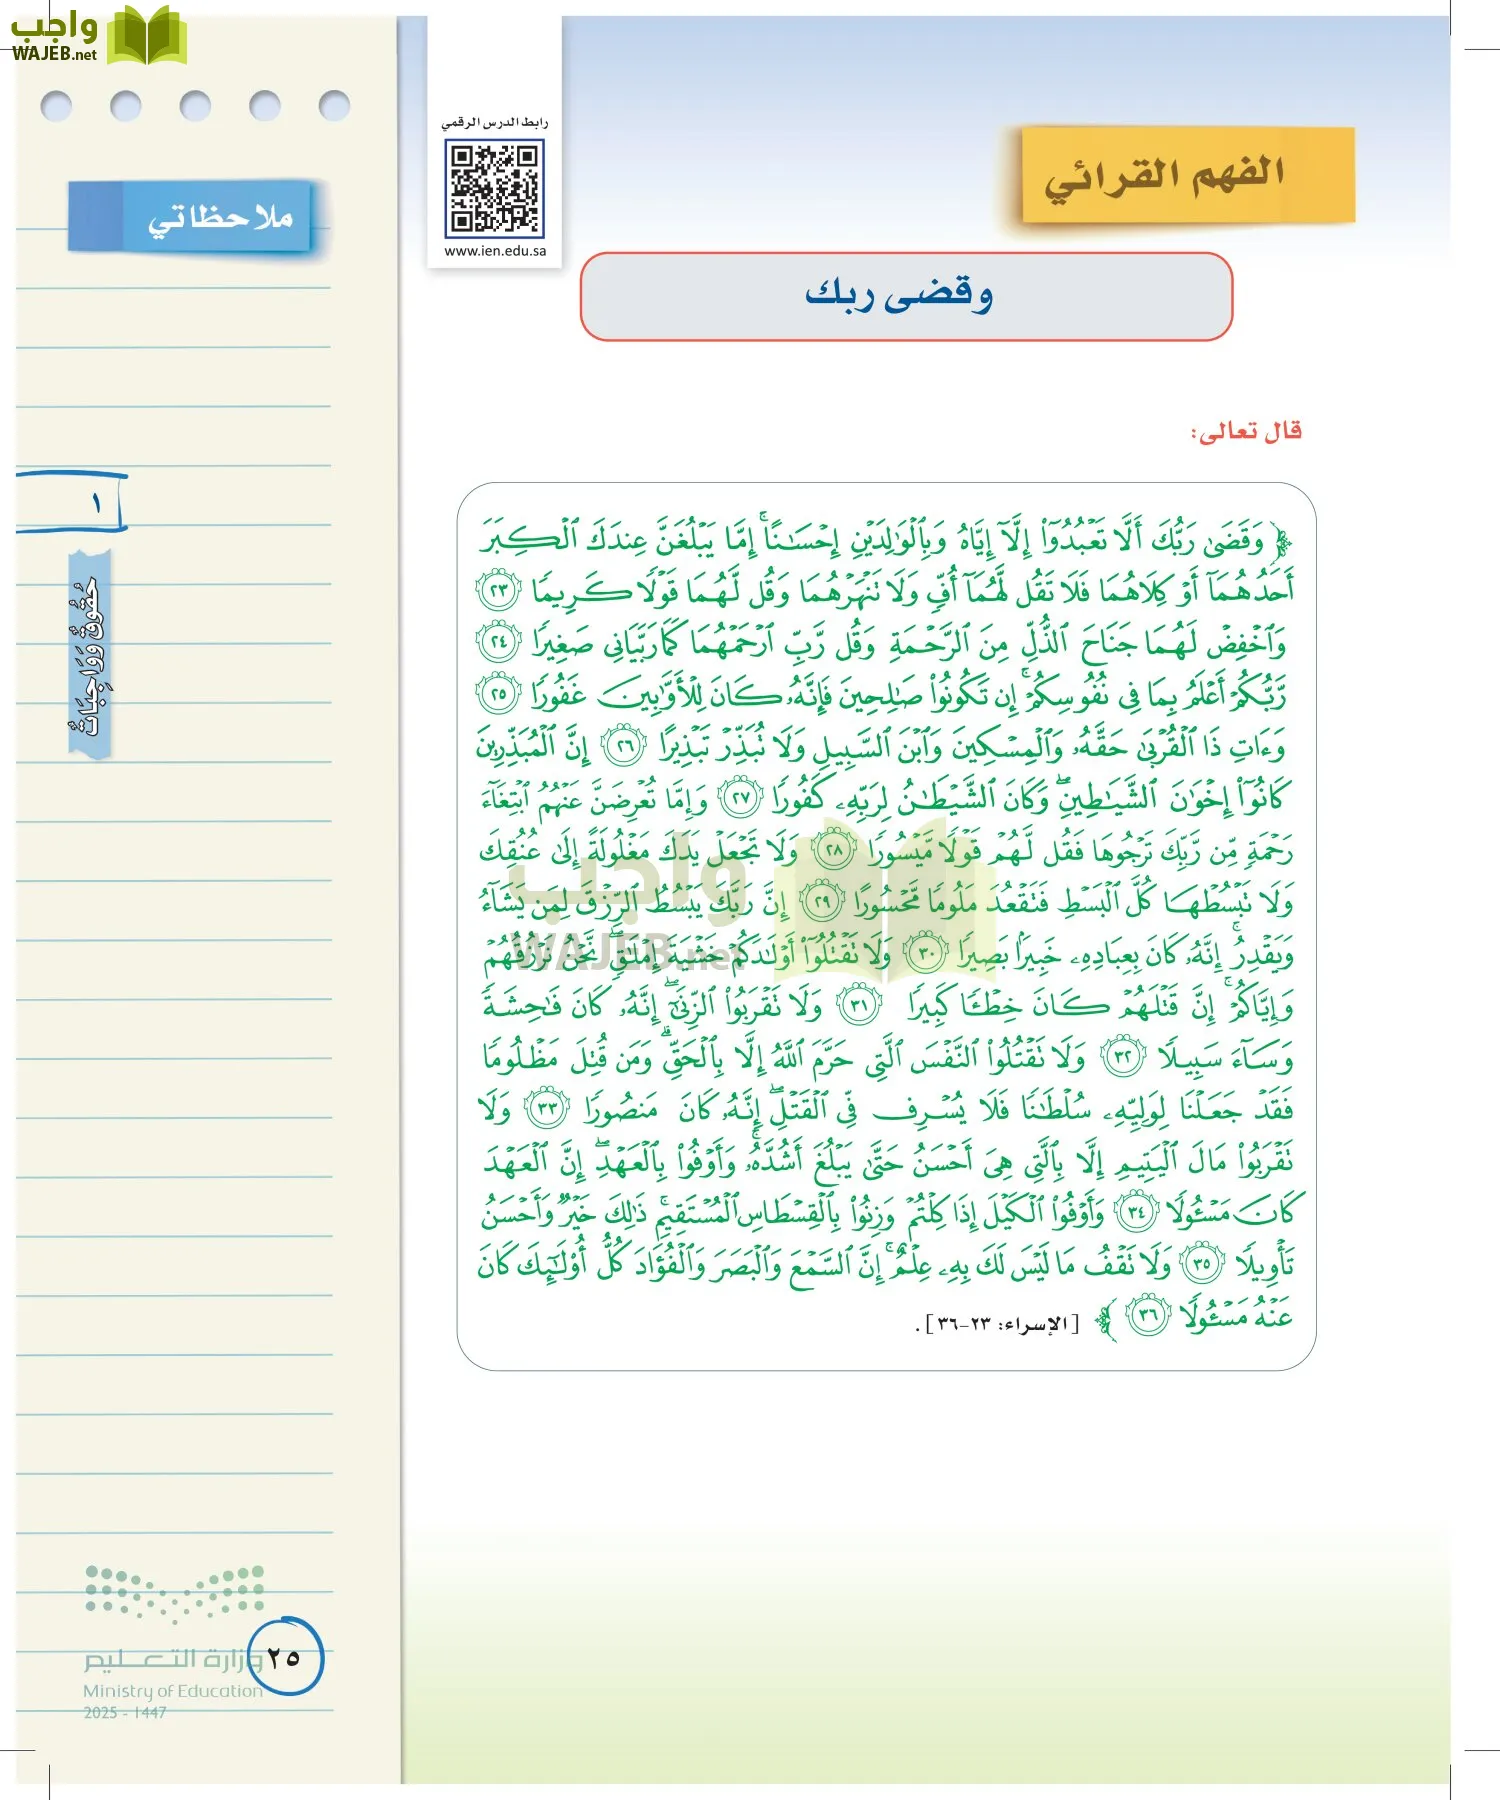 واجب
WAJEB.net
رابط الدرس الرقمي
www.ien.edu.sa
الفهم القرائي
ملاحظاتي
وقضى ربك
قال تعالى:
﴿ وَقَضَىٰ رَبُّكَ أَلَّا تَعْبُدُوٓا۟ إِلَّآ إِيَّاهُ وَبِٱلْوَٰلِدَيْنِ إِحْسَـٰنًا ۚ إِمَّا يَبْلُغَنَّ عِندَكَ ٱلْكِبَرَ
أَحَدُهُمَآ أَوْ كِلَاهُمَا فَلَا تَقُل لَّهُمَآ أُفٍّ وَلَا تَنْهَرْهُمَا وَقُل لَّهُمَا قَوْلًا كَرِيمًا ٢٣
وَٱخْفِضْ لَهُمَا جَنَاحَ ٱلذُّلِّ مِنَ ٱلرَّحْمَةِ وَقُل رَّبِّ ٱرْحَمْهُمَا كَمَا رَبَّيَانِى صَغِيرًا ٢٤
رَّبُّكُمْ أَعْلَمُ بِمَا فِى نُفُوسِكُمْ ۚ إِن تَكُونُوا۟ صَـٰلِحِينَ فَإِنَّهُۥ كَانَ لِلْأَوَّٰبِينَ غَفُورًا ٢٥
وَءَاتِ ذَا ٱلْقُرْبَىٰ حَقَّهُۥ وَٱلْمِسْكِينَ وَٱبْنَ ٱلسَّبِيلِ وَلَا تُبَذِّرْ تَبْذِيرًا ٢٦ إِنَّ ٱلْمُبَذِّرِينَ
كَانُوٓا۟ إِخْوَٰنَ ٱلشَّيَـٰطِينِ ۖ وَكَانَ ٱلشَّيْطَـٰنُ لِرَبِّهِۦ كَفُورًا ٢٧ وَإِمَّا تُعْرِضَنَّ عَنْهُمُ ٱبْتِغَآءَ
رَحْمَةٍ مِّن رَّبِّكَ تَرْجُوهَا فَقُل لَّهُمْ قَوْلًا مَّيْسُورًا ٢٨ وَلَا تَجْعَلْ يَدَكَ مَغْلُولَةً إِلَىٰ عُنُقِكَ
وَلَا تَبْسُطْهَا كُلَّ ٱلْبَسْطِ فَتَقْعُدَ مَلُومًا مَّحْسُورًا ٢٩ إِنَّ رَبَّكَ يَبْسُطُ ٱلرِّزْقَ لِمَن يَشَآءُ
وَيَقْدِرُ ۚ إِنَّهُۥ كَانَ بِعِبَادِهِۦ خَبِيرًۢا بَصِيرًا ٣٠ وَلَا تَقْتُلُوٓا۟ أَوْلَـٰدَكُمْ خَشْيَةَ إِمْلَـٰقٍ ۖ نَّحْنُ نَرْزُقُهُمْ
وَإِيَّاكُمْ ۚ إِنَّ قَتْلَهُمْ كَانَ خِطْـًٔا كَبِيرًا ٣١ وَلَا تَقْرَبُوا۟ ٱلزِّنَىٰٓ ۖ إِنَّهُۥ كَانَ فَـٰحِشَةً
وَسَآءَ سَبِيلًا ٣٢ وَلَا تَقْتُلُوا۟ ٱلنَّفْسَ ٱلَّتِى حَرَّمَ ٱللَّهُ إِلَّا بِٱلْحَقِّ ۗ وَمَن قُتِلَ مَظْلُومًا
فَقَدْ جَعَلْنَا لِوَلِيِّهِۦ سُلْطَـٰنًا فَلَا يُسْرِف فِّى ٱلْقَتْلِ ۖ إِنَّهُۥ كَانَ مَنصُورًا ٣٣ وَلَا
تَقْرَبُوا۟ مَالَ ٱلْيَتِيمِ إِلَّا بِٱلَّتِى هِىَ أَحْسَنُ حَتَّىٰ يَبْلُغَ أَشُدَّهُۥ ۚ وَأَوْفُوا۟ بِٱلْعَهْدِ ۖ إِنَّ ٱلْعَهْدَ
كَانَ مَسْـُٔولًا ٣٤ وَأَوْفُوا۟ ٱلْكَيْلَ إِذَا كِلْتُمْ وَزِنُوا۟ بِٱلْقِسْطَاسِ ٱلْمُسْتَقِيمِ ۚ ذَٰلِكَ خَيْرٌ وَأَحْسَنُ
تَأْوِيلًا ٣٥ وَلَا تَقْفُ مَا لَيْسَ لَكَ بِهِۦ عِلْمٌ ۚ إِنَّ ٱلسَّمْعَ وَٱلْبَصَرَ وَٱلْفُؤَادَ كُلُّ أُو۟لَـٰٓئِكَ كَانَ
عَنْهُ مَسْـُٔولًا ٣٦ ﴾ [الإسراء: ٢٣-٣٦].
واجب
WAJEB.net
١
حُقُوقٌ وَوَاجِبَاتٌ
وزارة التعليم
Ministry of Education
2025 - 1447
٢٥